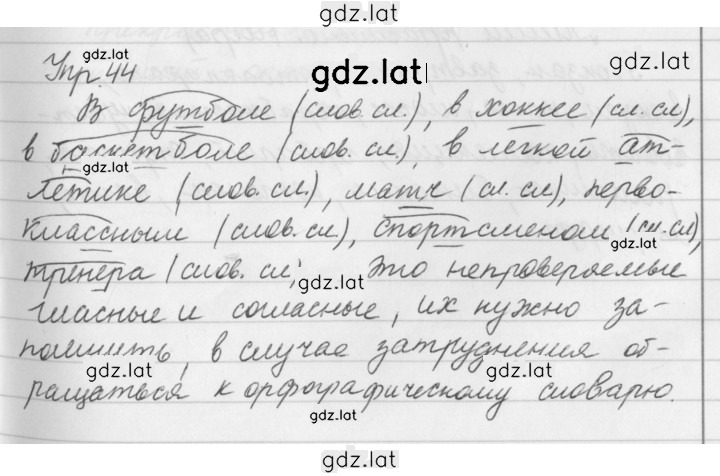 gdz.lat
Упр. 44
gdz.lat
gdz.lat
В футболе (слов. сл.), в хоккее (сл. сл),
в баскетболе (слов. сл), в лёгкой ат-
gdz.lat
летике (слов. сл.), матч (сл. сл), перво-
классным (слов. сл), спортсменом (сл. сл),
gdz.lat
тренера (слов. сл; Это непроверяемые
gdz.lat
гласные и согласные, их нужно за-
помнить, в случае затруднения об-
gdz.lat
gdz.lat
ращаться к орфографическому словарю.
gdz.lat
gdz.lat